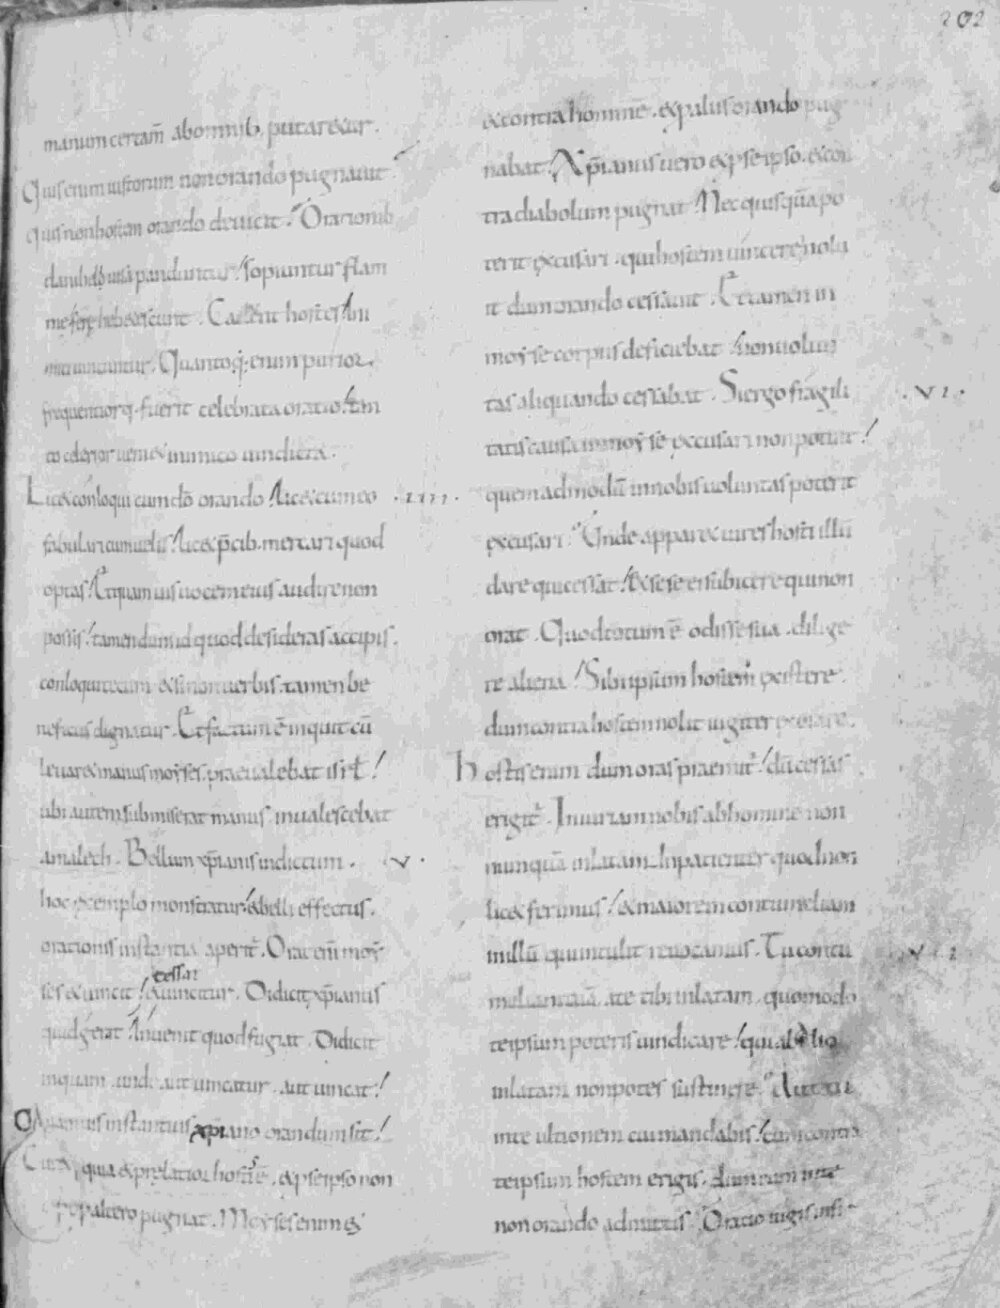 202
manum certam̄ abomnib; putaretur.
Quis enim iustorum non orando pugnauit.
quis non hostem orando deuicit. Orationib
panduntur sopiuntur flam
hostes
Quantoq;. enim purior,
frequentiorq;. fuerit celebrata oratio. tan
to celerior uenit inimico uindicta.
Licet conloqui cum dō orando licet cum eo .IIII.
fabulari cum uelis licet p̄cib; mercari quod
optas. Et quam uis uocem eius audire non
possis tamen dum id quod desideras accipis.
conloqui tecum etsi non uerbis. tamen be
neficiis dignatur. Et factum ē inquit cū
leuaret manus moyses. praeualebat isrł
ubi autem submiserat manus. inualescebat
amalech. Bellum xp̄ianis indictum. .V.
hoc exemplo monstratur & belli effectus.
orationis instantia aperit̄. Orat eni moy
cessat
ses et uincit & uincitur. Didicit xp̄ianus
quid gerat inuenit quod fugiat. Didicit
inquam. unde aut uincatur. aut uincat
instantius xp̄iano orandum sit
quia & hostē. & p se ipso non
p altero pugnat. Moyses enim &
et contra hominē. et p aliis orando pug
nabat Xp̄ianus uero et p se ipso. et con
tra diabolum pugnat Nec quisquā po
terit excusari. qui hostem uincere nolu
it dum orando cessauit. Et tamen in
moyse corpus deficiebat non uolun
tas aliquando cessabat. Si ergo fragili .VI.
tatis causa in moyse excusari non potuit
quemadmodū in nobis uoluntas poterit
excusari. Unde apparet uires hosti illū
dare qui cessat. et se se ei subicere qui non
orat. Quod totum ē odisse sua. dilige
re aliena Sibi ipsum hostem existere.
dum contra hostem nolit iugiter exorare.
hostis enim dum oras praemit̄ dū cessas
erigit̄. Iniuriam nobis ab homine non
nunquā inlatam inpatienter quod non
licet ferimus et maiorem contumeliam
in illū qui intulit reuocamus. Tu contu .VII.
meliam tuā. a te tibi inlatam. quomodo
te ipsum poteris uindicare qui ab alio
inlatam non potes sustinere. Aut cui
in te ultionem cui mandabis cum contra
te ipsum hostem erigis.
non orando admittis. Oratio iugis. nisi